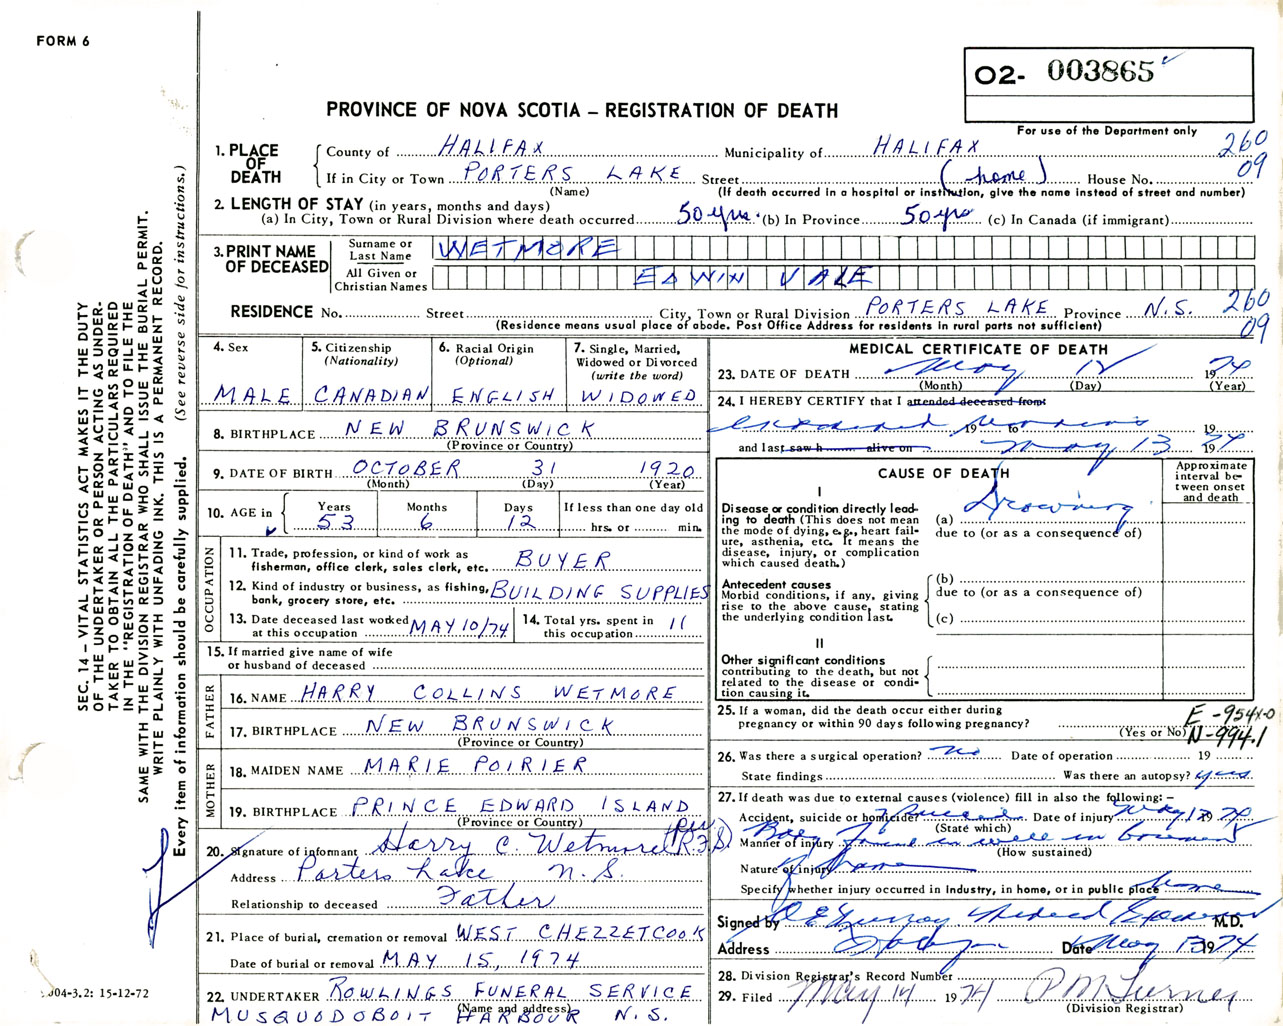 FORM 6
O2- 003865
PROVINCE OF NOVA SCOTIA – REGISTRATION OF DEATH
For use of the Department only
1. PLACE OF DEATH
County of HALIFAX Municipality of HALIFAX 260
If in City or Town PORTERS LAKE Street (home) House No. 09
(Name) (If death occurred in a hospital or institution, give the name instead of street and number)
2. LENGTH OF STAY (in years, months and days)
(a) In City, Town or Rural Division where death occurred 50 yrs. (b) In Province 50 yrs (c) In Canada (if immigrant)
3. PRINT NAME OF DECEASED
Surname or Last Name WETMORE
All Given or Christian Names EDWIN VALE
RESIDENCE No. Street City, Town or Rural Division PORTERS LAKE Province N.S. 260
(Residence means usual place of abode. Post Office Address for residents in rural parts not sufficient) 09
4. Sex MALE
5. Citizenship (Nationality) CANADIAN
6. Racial Origin (Optional) ENGLISH
7. Single, Married, Widowed or Divorced (write the word) WIDOWED
8. BIRTHPLACE NEW BRUNSWICK
(Province or Country)
9. DATE OF BIRTH OCTOBER 31 1920
(Month) (Day) (Year)
10. AGE in Years 53 Months 6 Days 12 If less than one day old hrs. or min.
OCCUPATION
11. Trade, profession, or kind of work as fisherman, office clerk, sales clerk, etc. BUYER
12. Kind of industry or business, as fishing, bank, grocery store, etc. BUILDING SUPPLIES
13. Date deceased last worked at this occupation MAY 10/74
14. Total yrs. spent in this occupation 11
15. If married give name of wife or husband of deceased
FATHER
16. NAME HARRY COLLINS WETMORE
17. BIRTHPLACE NEW BRUNSWICK
(Province or Country)
MOTHER
18. MAIDEN NAME MARIE POIRIER
19. BIRTHPLACE PRINCE EDWARD ISLAND
(Province or Country)
20. Signature of informant Harry C. Wetmore
Address Porters Lake N.S.
Relationship to deceased Father
21. Place of burial, cremation or removal WEST CHEZZETCOOK
Date of burial or removal MAY 15, 1974
22. UNDERTAKER ROWLINGS FUNERAL SERVICE
(Name and address)
MUSQUODOBOIT HARBOUR N.S.
MEDICAL CERTIFICATE OF DEATH
23. DATE OF DEATH May 12 1974
(Month) (Day) (Year)
24. I HEREBY CERTIFY that I attended deceased from:
examined remains 19 to 19
and last saw h alive on May 13 1974
CAUSE OF DEATH
Approximate interval between onset and death
I
Disease or condition directly leading to death (This does not mean the mode of dying, e.g., heart failure, asthenia, etc. It means the disease, injury, or complication which caused death.)
(a) Drowning
due to (or as a consequence of)
Antecedent causes
Morbid conditions, if any, giving rise to the above cause, stating the underlying condition last.
(b)
due to (or as a consequence of)
(c)
II
Other significant conditions contributing to the death, but not related to the disease or condition causing it.
25. If a woman, did the death occur either during pregnancy or within 90 days following pregnancy?
(Yes or No)
E-954X-0
N-994.1
26. Was there a surgical operation? no Date of operation 19
State findings Was there an autopsy? yes
27. If death was due to external causes (violence) fill in also the following: –
Accident, suicide or homicide? Date of injury May 12 1974
(State which)
Manner of injury Body found in well in basement
(How sustained)
Nature of injury of home
Specify whether injury occurred in Industry, in home, or in public place home
Signed by M.D.
Address Date May 13 1974
28. Division Registrar's Record Number
29. Filed May 14 1974 P M Turner
(Division Registrar)
SEC. 14 – VITAL STATISTICS ACT MAKES IT THE DUTY
OF THE UNDERTAKER OR PERSON ACTING AS UNDER-
TAKER TO OBTAIN ALL THE PARTICULARS REQUIRED
IN THE "REGISTRATION OF DEATH" AND TO FILE THE
SAME WITH THE DIVISION REGISTRAR WHO SHALL ISSUE THE BURIAL PERMIT.
WRITE PLAINLY WITH UNFADING INK. THIS IS A PERMANENT RECORD.
Every item of information should be carefully supplied. (See reverse side for instructions.)
004-3.2: 15-12-72